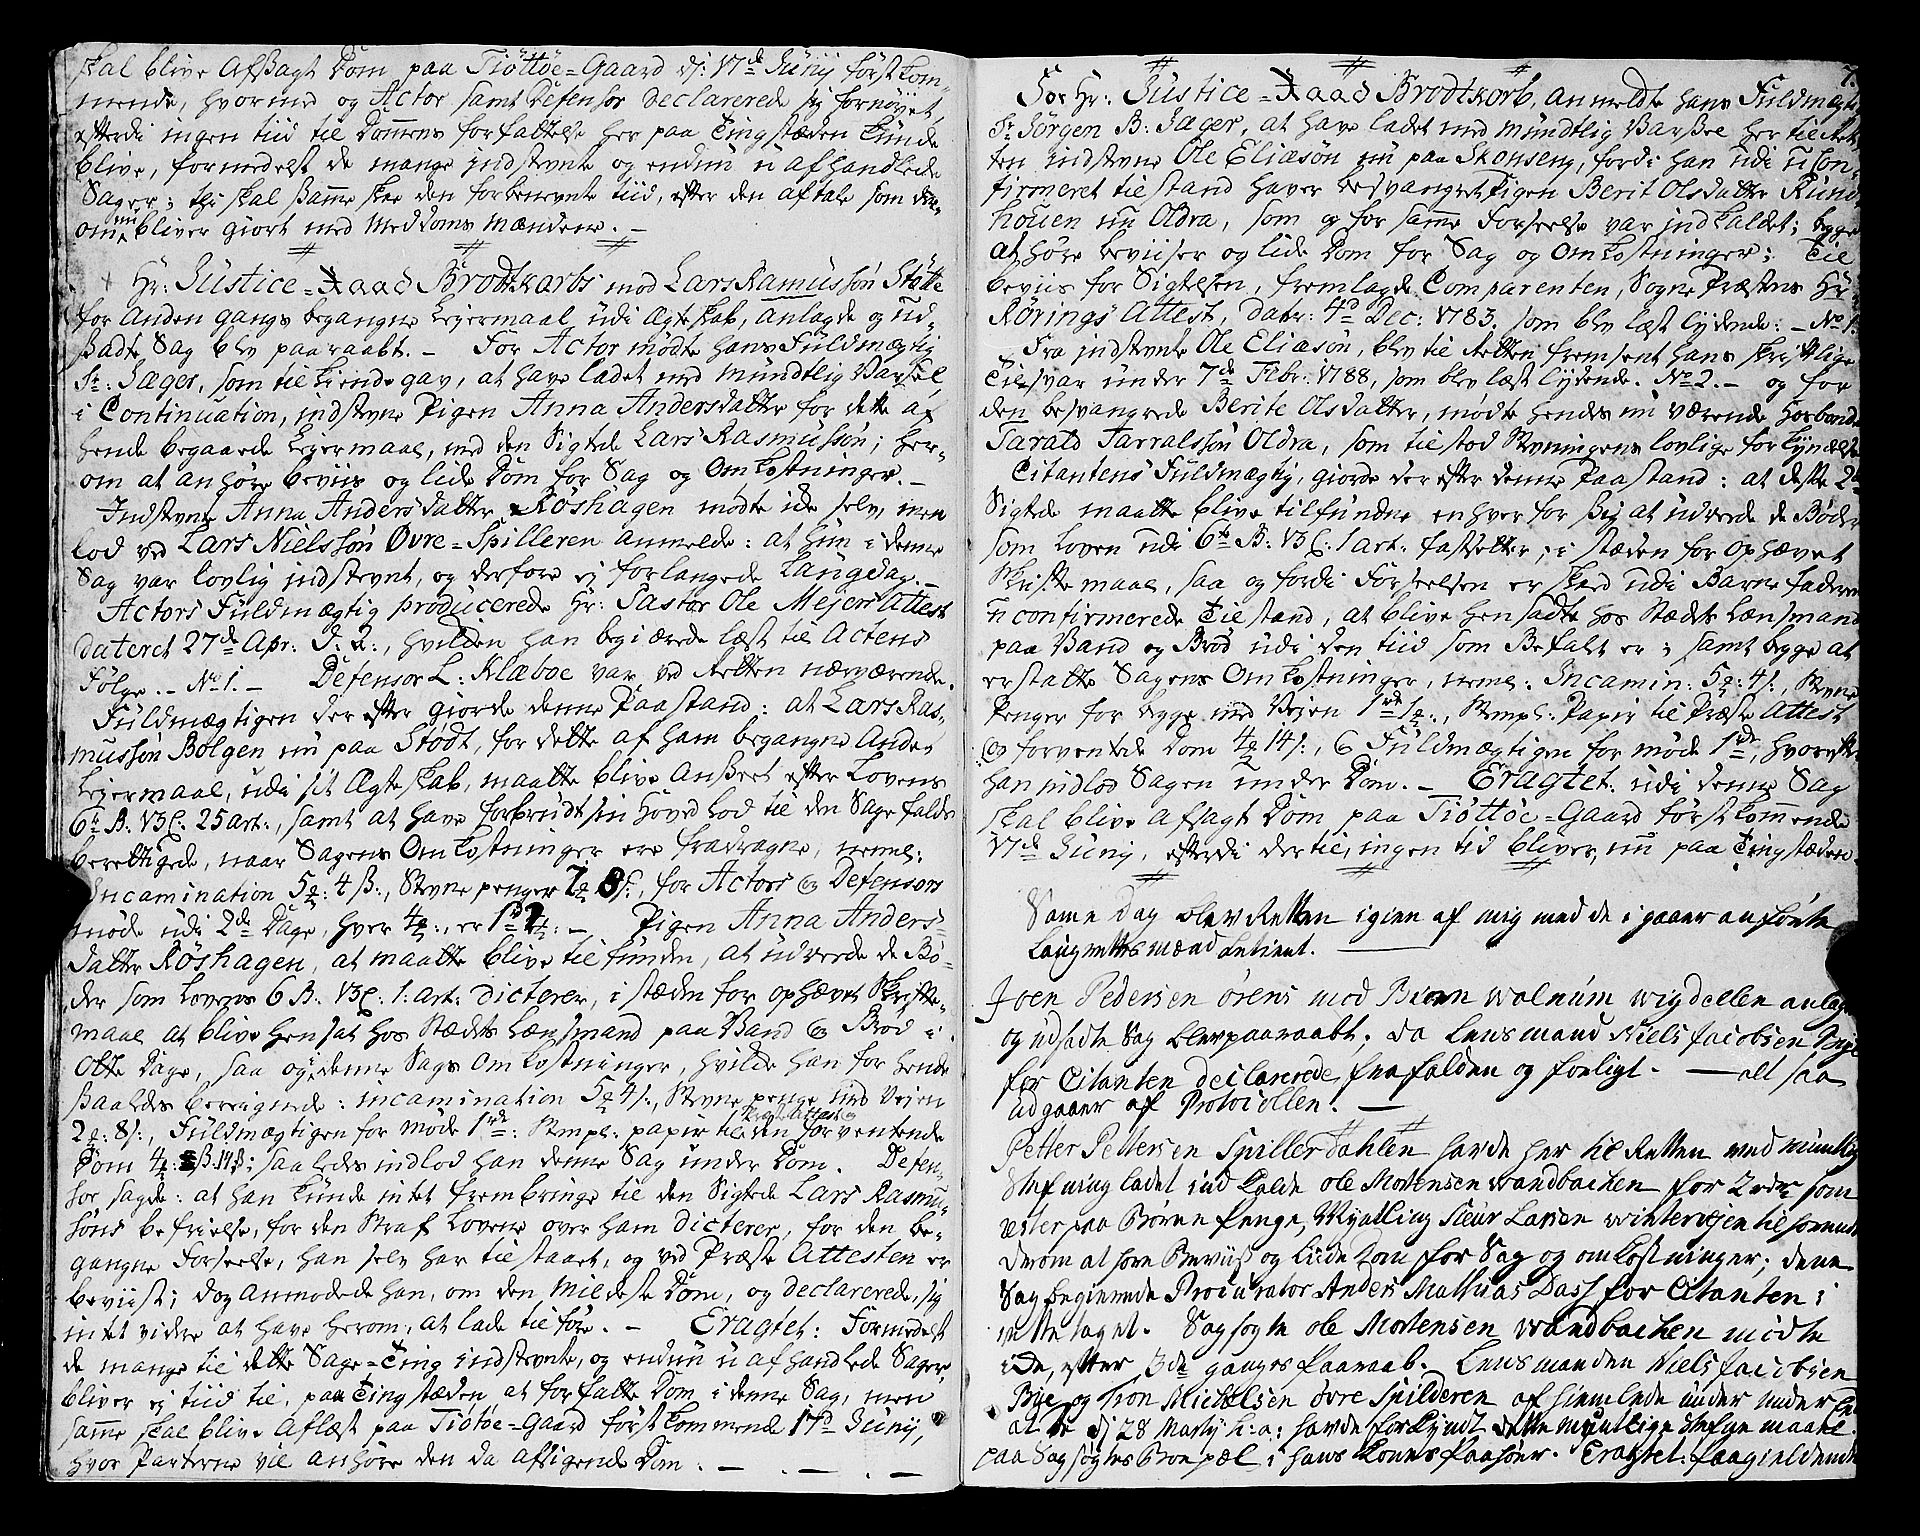 skal blive afsagt Dom paa Tiøttøe-Gaard d: 17de Junij førstkom-
mende, hvormed og Actor samt Defensor declarerede sig fornøyet,
efterdi ingen tiid til Dommens forfattelse her paa Tingstæden kunde
blive, formedelst de mange indstevnte og endnu uafhandlede
Sager; thi skal samme skee den forbenevnte tiid, efter den aftale som der-
om nu bliver giort med Meddoms Mændene. –
Hr: Justice-Raad Brodtkorbs mod Lars Ramussøn Støtte
for anden gangs begangne Leyermaal udi Ægteskab, anlagde og ud-
satte Sag blev paaraabt. – For Actor mødte hans Fuldmægtig
Sr: Jæger, som tilkiende gav, at have ladet med mundtlig Varsel
i Continuation, indstevne Pigen Anna Andersdatter for dette af
hende begaaede Leyermaal, med den Sigtede Lars Rasmussøn; her-
om at anhøre beviis og lide Dom for Sag og Omkostninger. –
Indstevnte Anna Andersdatter Røshagen mødte icke selv, men
lod ved Lars Nielssøn Øvre-Spilleren anmelde: at hun i denne
Sag var lovlig indstevnt, og derfore ej forlangede Laugdag. –
Actors Fuldmægtig producerede Hr: Pastor Ole Mejers Attest
dateret 27de Apr: d. A:, hvilken han begiærede læst til Actens
Følge. – No 1. – Defensor L: Klæboe var ved Retten nærværende.
Fuldmægtigen der efter giorde denne Paastand: at Lars Ras-
mussøn Bolgen nu paa Stødt, for dette af ham begangne Anden
Leyermaal, udi sit Ægteskab, maatte blive anseet efter Lovens
6te B: 13 C: 25 art:, samt at have forbrudt sin Hoved Lod til den Sagefalds
berettigede, naar Sagens Omkostninger ere fradragne, neml:
Incamination 5 : 4 ß:, Stevnepenger 7 8 ß:, for Actors og Defensors
møde udi 2de Dage, hver 4 :, er 1 : – Pigen Anna Anders-
datter Røshagen, at maatte blive tilfunden, at udreede de Bø-
der som Lovens 6 B: 13 C: 1. art: dicterer, i stæden for ophævet Skrifte-
maal at blive hensat hos Stædets Lænsmand paa Vand og Brød i
Otte Dage, saa og denne Sags Omkostninger, hvilke han for hende
saaledes beregnede: incamination 5 4 ß:, Stevne penge med Vejen
2 : 8 ß:, Fuldmægtigen for møde 1 : Stempl: papir til Præste Attest og den forventende
Dom 4 : 14 ß; saaledes indlod han denne Sag under Dom. Defen-
sor sagde: at han kunde intet frembringe til den Sigtede Lars Rasmu-
søns befrielse, for den Straf Lovene over ham dicterer, for den be-
gangne Forseelse, han selv har tilstaaet, og ved Præste Attesten er
beviist; dog anmodede han, om den mildeste Dom, og declarerede, sig
intet videre at have herom, at lade tilføre. – Eragtet: Formedelst
de mange til dette Sage-Ting indstevnte, og endnu uafhandlede Sager,
bliver ej tiid til, paa Tingstæden at forfatte Dom i denne Sag, men
samme skal blive aflæst paa Tiøttøe-Gaard førstkommende 17de Junij,
hvor Parterne vil anhøre den da afsigende Dom. – . – . –
7.
For Hr: Justice-Raad Brodtkorb, anmeldte hans Fuldmægtig
Sr Jørgen B: Jæger, at have ladet med mundtlig Varsel her til Ret-
ten indstevne Ole Eliasøn nu paa Skonseng, fordi han udi ucon-
firmeret tilstand haver besvangret Pigen Berit Olsdatter Rund-
houen nu Oldra, som og for samme Forseelse var indkaldet; begge
at høre beviiser og lide Dom for Sag og Omkostninger; Til
beviis for Sigtelsen, fremlagde Comparenten, Sogne Præstens Hr:
Rørings Attest, dat: 4de Dec: 1783. som blev læst lydende: – No 1.
Fra indstevnte Ole Eliasøn, blev til Retten fremsent hans skriftlige
Tilsvar under 7de Febr: 1788, som blev læst lydende. No 2. – og for
den besvangrede Berite Olsdatter, mødte hendes nu værende Hosbonde
Tarald Tarralssøn Oldra, som tilstod Stevningens lovlige forkyndelse
Citantens Fuldmægtig, giorde der efter denne Paastand: at dette 2de
Sigtede maatte blive tilfundne enhver for sig at udreede de Bøder
som Loven udi 6te B: 13 C: 1 art: fastsetter, i stæden for ophævet
Skriftemaal, saa og fordi Forseelsen er skeed udi Barnefaderens
Uconfirmerede Tilstand, at blive hensadte hos Stædets Lænsmand
paa Vand og Brød udi den tiid som Befalt er; samt begge at
erstatte Sagens Omkostninger, neml: Incamin: 5 : 4 ß:, Stevne
Penger for begge med Vejen 1 :, Stempl: Papir til Præste Attest
og forventede Dom 4 14 ß:, og Fuldmægtigen for møde 1 , hvorefter
han indlod Sagen under Dom. – Eragtet: udi denne Sag
skal blive afsagt Dom paa Tiøttøe-Gaard førstkommende
17de Junij, efterdi dertil, ingen tid bliver, nu paa Tingstæden.
Same Dag blev Retten igien af mig med de i gaaer anførte
Laugrettesmænd betient. –
Joen Pedersen Ørens mod Biørn Walnum Wigdeelen anlagde
og udsadte Sag blev paaraabt; da Lensmand Niels Jacobsen Bye
for Citanten declarerede frafalden og forligt. – alt saa
udgaaer af Protocollen. –
Petter Pettersen Spillerdahlen havde her til Retten med muntlig
Stefning ladet indkalde ole Mortensen Wandbacken for 2 rdr som
rester paa Børne Penge, Myndling Siur Larsen Winterwejen tilhørende
derom at høre Beviis og liide Dom for Sag og omkostninger; dene
Sag begierede Procurator Anders Mathias Dass for Citanten i
rette taget. Sagsøgte ole Mortensen Wandbacken mødte
icke, efter 3de ganges Paaraab. Lensmanden Niels Jacobsen
Bye og Tron Michelsen øvre Spilderen afhiemlede under
at de d 28 Martij h: a: havde forkyndt dette muntlige Stefnemaal
paa Sagsøgtes Boepæl i hans Kones Paahør. Eragtet: Paagieldende